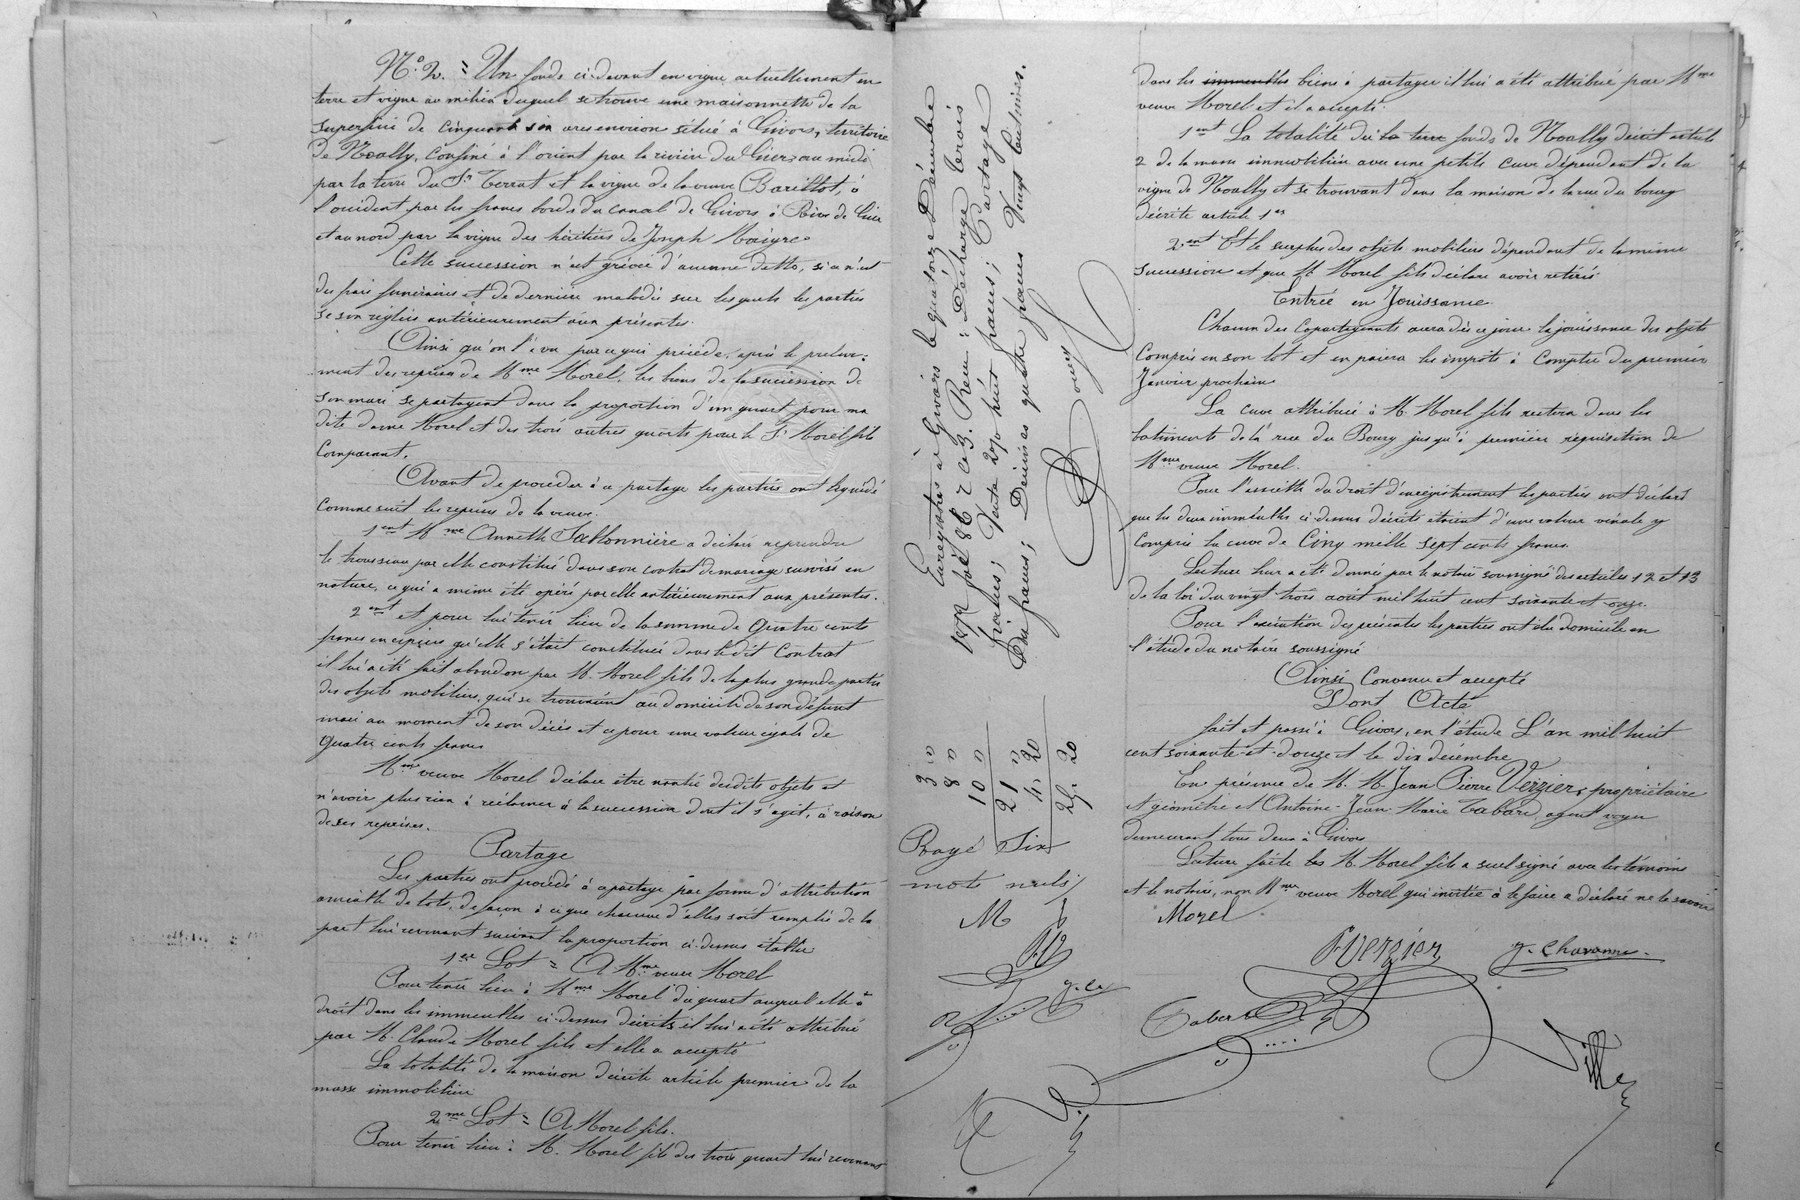 N° 2. = Un fonds ci-devant en vigne actuellement en
terre et vigne au milieu duquel se trouve une maisonnette de la
superficie de cinquante six ares environ situé à Givors, territoire
de Moally, confiné à l'orient par la rivière du Gier, au midi
par la terre du Sr Terrat et la vigne de la veuve Barillot, à
l'occident par les francs bords du canal de Givors à Rive de Gier
et au nord par la vigne des héritiers de Joseph Maigre.
Cette succession n'est grévée d'aucune dette, si ce n'est
des frais funéraires et de dernière maladie sur lesquels les parties
se son réglées antérieurement aux présentes.
Ainsi qu'on l'a vu par ce qui précède, après le prélève-
ment des reprises de Mme Morel, les biens de la succession de
son mari se partagent dans la proportion d'un quart pour ma
dite dame Morel et des trois autres quarts pour le Sr Morel fils
Comparant.
Avant de procéder à ce partage les parties ont liquidé
comme suit les reprises de la veuve.
1ent Mme Annette Sablonnière a déclaré reprendre
le trousseau par elle constitué dans son contrat de mariage susvisé en
nature, ce qui a même été opéré par elle antérieurement aux présentes.
2ent et pour lui tenir lieu de la somme de Quatre cents
francs en espèces qu'elle s'était constituée dans ledit Contrat
il lui a été fait abandon par M. Morel fils de la plus grande partie
des objets mobiliers qui se trouvaient au domicile de son défunt
mari au moment de son décès et ce pour une valeur égale de
Quatre cents francs
Mme veuve Morel déclare être nantie desdits objets et
n'avoir plus rien à réclamer à la succession dont il s'agit, à raison
de ses reprises.
Partage
Les parties ont procédé à ce partage par forme d'attribution
amiable de lots, de façon à ce que chacune d'elles soit remplie de la
part lui revenant suivant la proportion ci-dessus établie
1er Lot = A Mme veuve Morel
Pour tenir lieu à Mme Morel du quart auquel elle a
droit dans les immeubles ci-dessus décrits, il lui a été attribué
par M. Claude Morel fils et elle a accepté
La totalité de la maison décrite article premier de la
masse immobilière
2me Lot = A Morel fils.
Pour tenir lieu à M. Morel fils des trois quart lui revenant
Enregistré à Givors le quatorze Décembre
1872 fol 86 r c 3. Reçu: Décharge trois
francs; Vente huit francs; Partage
Dix francs; Décimes quatre francs Vingt centimes.
3 "
8 "
10 "
21 "
4, 20
25. 20
Rayé Six
mots nuls/
M
dans les immeubles biens à partager il lui a été attribué par Mme
veuve Morel et il a accepté.
1ent La totalité du la terre fonds de Moally décrit article
2 de la masse immobilière avec une petite cuve dépendant de la
vigne de Moally et se trouvant dans la maison de la rue du bourg
décrite article 1er
2ent Et le surplus des objets mobiliers dépendant de la même
succession et que M. Morel fils déclare avoir retirés
Entrée en Jouissance
Chacun des Copartageants aura dès ce jour la jouissance des objets
compris en son lot et en paiera les impôts à compter du premier
Janvier prochain
La cuve attribuée à M. Morel fils restera dans les
batiments de la rue du Bourg jusqu'à première réquisition de
Mme veuve Morel.
Pour l'assiette du droit d'enregistrement les parties ont déclaré
que les deux immeubles ci-dessus décrits étaient d'une valeur vénale y
compris la cuve de Cinq mille sept cents francs.
Lecture leur a été donné par le notaire soussigné des articles 12 et 13
de la loi du vingt trois août mil huit cent soixante et onze.
Pour l'exécution des présentes les parties ont élu domicile en
l'étude du notaire soussigné
Ainsi Convenu et accepté
Dont Acte
fait et passé à Givors, en l'étude L'an mil huit
cent soixante-et-douze et le dix décembre
En présence de M. M. Jean Pierre Verzier, propriétaire
et géomètre et Antoine-Jean-Marie Tabard, agent voyer
demeurant tous deux à Givors
Lecture faite les M. Morel fils a seul signé avec les témoins
et le notaire, non Mme veuve Morel qui invitée à le faire a déclaré ne le savoir
Morel
P. Verzier
J. Chavanne
Tabard